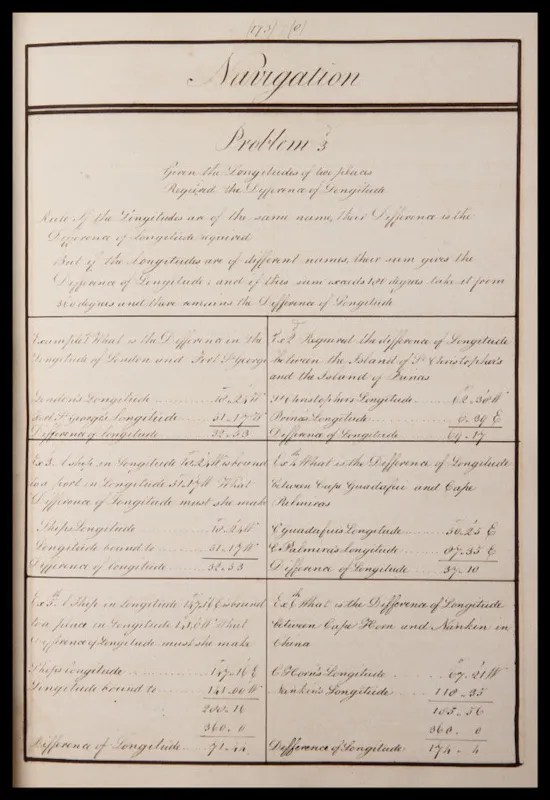 (173) (6)
Navigation
Problem 3
Given the Longitudes of two places
Required the Difference of Longitude
Rule If the Longitudes are of the same name, their Difference is the
Difference of Longitude required
But if the Longitudes are of different names, their sum gives the
Difference of Longitude; and if this sum exceeds 180 degres take it from
360 degrees and there remains the Difference of Longitude
Example 1st What is the Difference in the
Longitude of London and Fort St George
London's Longitude 18.24 W
Fort St George's Longitude 51.17 W
Difference of Longitude 32.53
Ex 2d Required the difference of Longitude
between the Island of St Christopher's
and the Island of Princes
St Christophers Longitude 62.30 W
Princes Longitude 6.39 E
Difference of Longitude 69.17
Ex 3 A ship in Longitude 18.24 W is bound
to a port in Longitude 51.17 W What
Difference of Longitude must she make
Ships Longitude 18.24 W
Longitude bound to 51.17 W
Difference of Longitude 32.53
Ex 4th What is the Difference of Longitude
between Cape Guadafui and Cape
Palmiras
C Guadafuis Longitude 50.25 E
C Palmiras Longitude 87.35 E
Difference of Longitude 37.10
Ex 5th A Ship in Longitude 147.16 E is bound
to a place in Longitude 141.0 W What
Difference of Longitude must she make
Ships longitude 147.16 E
Longitude bound to 141.00 W
288.16
360.0
Difference of Longitude 71.44
Ex 6th What is the Difference of Longitude
between Cape Horn and Nanken in
China
C Horn's Longitude 67.21 W
Nanken's Longitude 118.35
185.56
360.0
Difference of Longitude 174.4